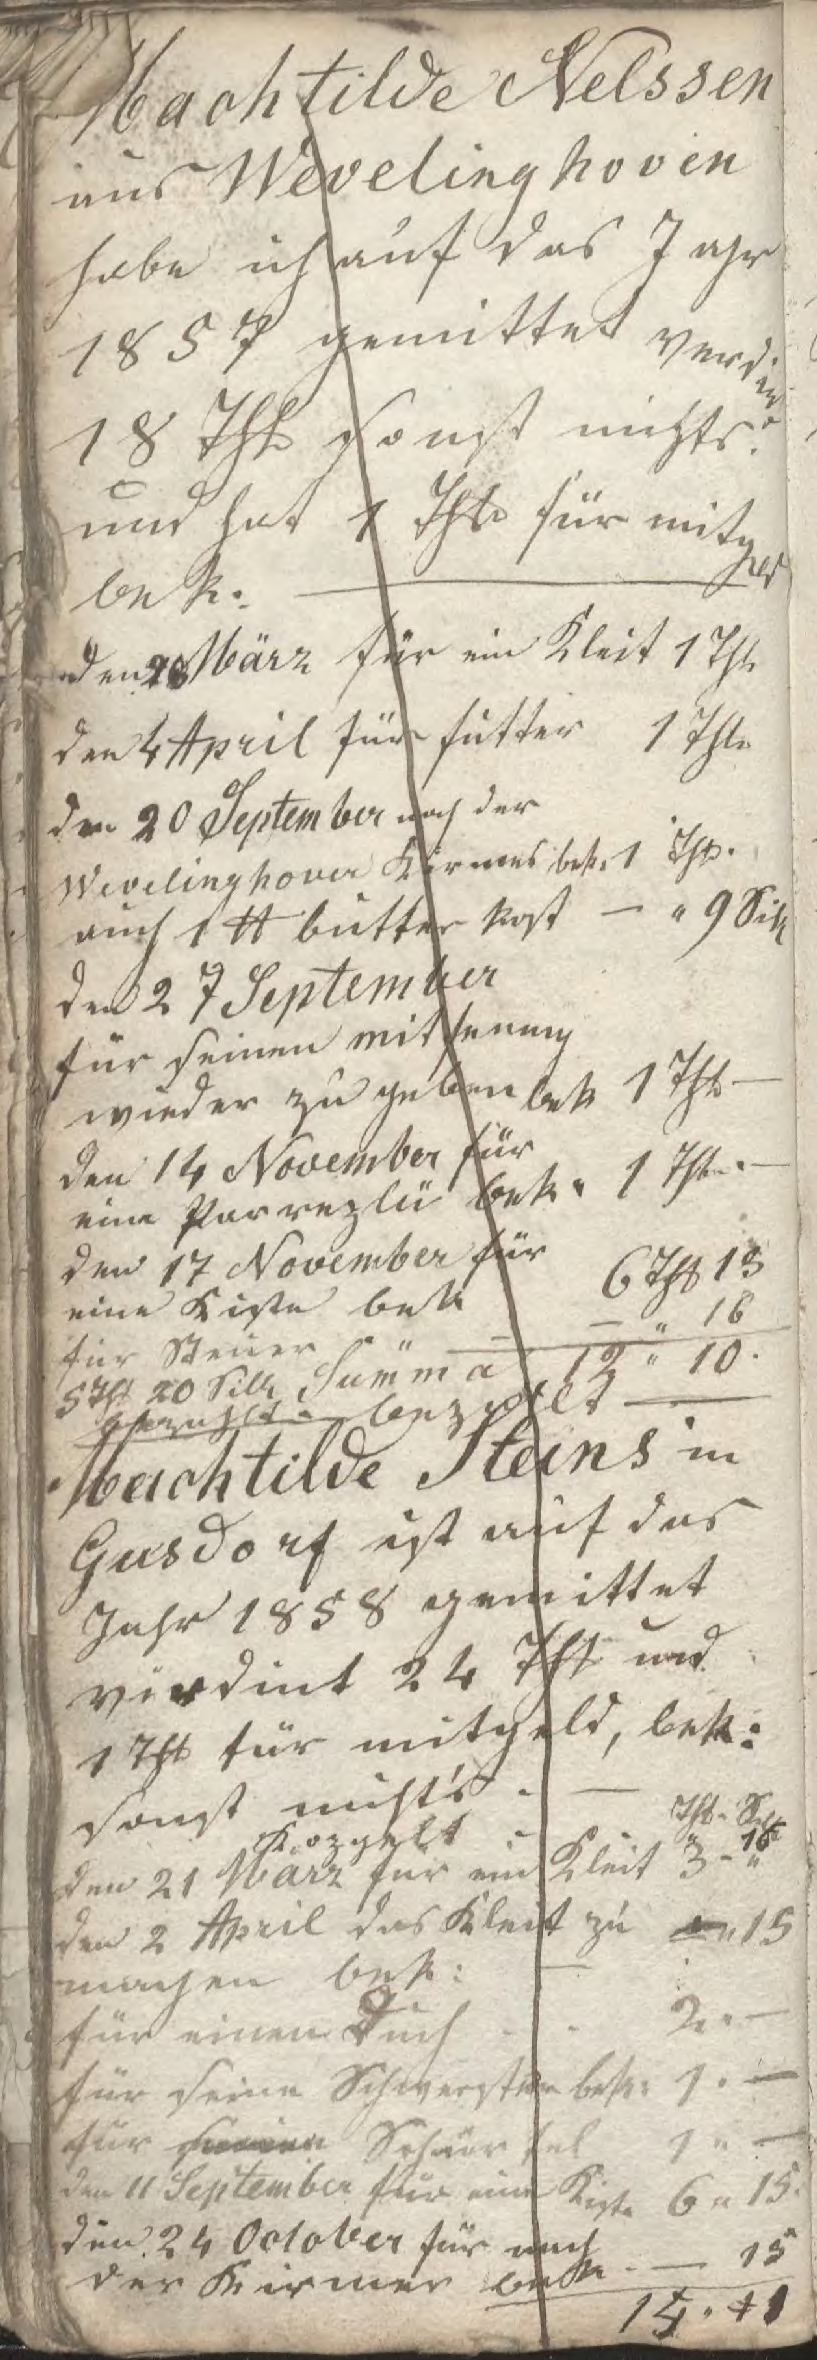 Machtilde Nelssen
aus Wevelinghoven
habe ich auf das Jahr
1857 gemittet verdint
18 Thl sonst nichts.
und hat 1 Thl für mitgeld
bek.
den 28 März für ein Kleit 1 Thl
den 4 April für futter 1 Thl
den 20 September nach der
Wevelinghover Kirmes bek. 1 Thl.
auch 1 ℔ butter kost — " 9 Silb
den 27 September
für seinen
wieder zu geben bek 1 Thl —
den 14 November für
eine bek. 1 Thl. —
den 17 November für
eine Kiste bek 6 Thl 15
für Steuer — " 16
Summa 12 " 10.
5 Thl 20 Silb
bezalt —
Machtilde Steins in
Gusdorf ist auf das
Jahr 1858 gemittet
verdint 24 Thl und
1 Thl für mitgeld, bek:
sonst nichts. —
Thl. Silb
16
den 21 März für ein Kleit 3 - "
den 2 April das Kleit zu — " 15
machen bek:
für einen Tuch - - 2 " —
für seine Schwester bek: 1 " —
für 1 " —
den 11 September für eine Kiste 6 " 15.
den 24 October für nach
der Kirmes bek. — 15